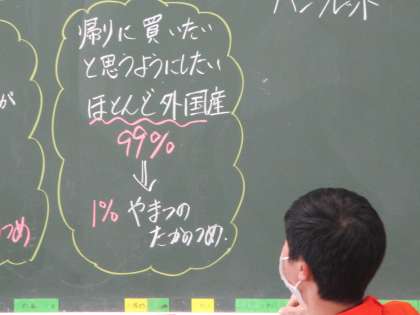 パンフレット
帰りに買いたい
と思うようにしたい
ほとんど外国産
99%
⇓
1% やまつの
たかのつめ.
が
つめ